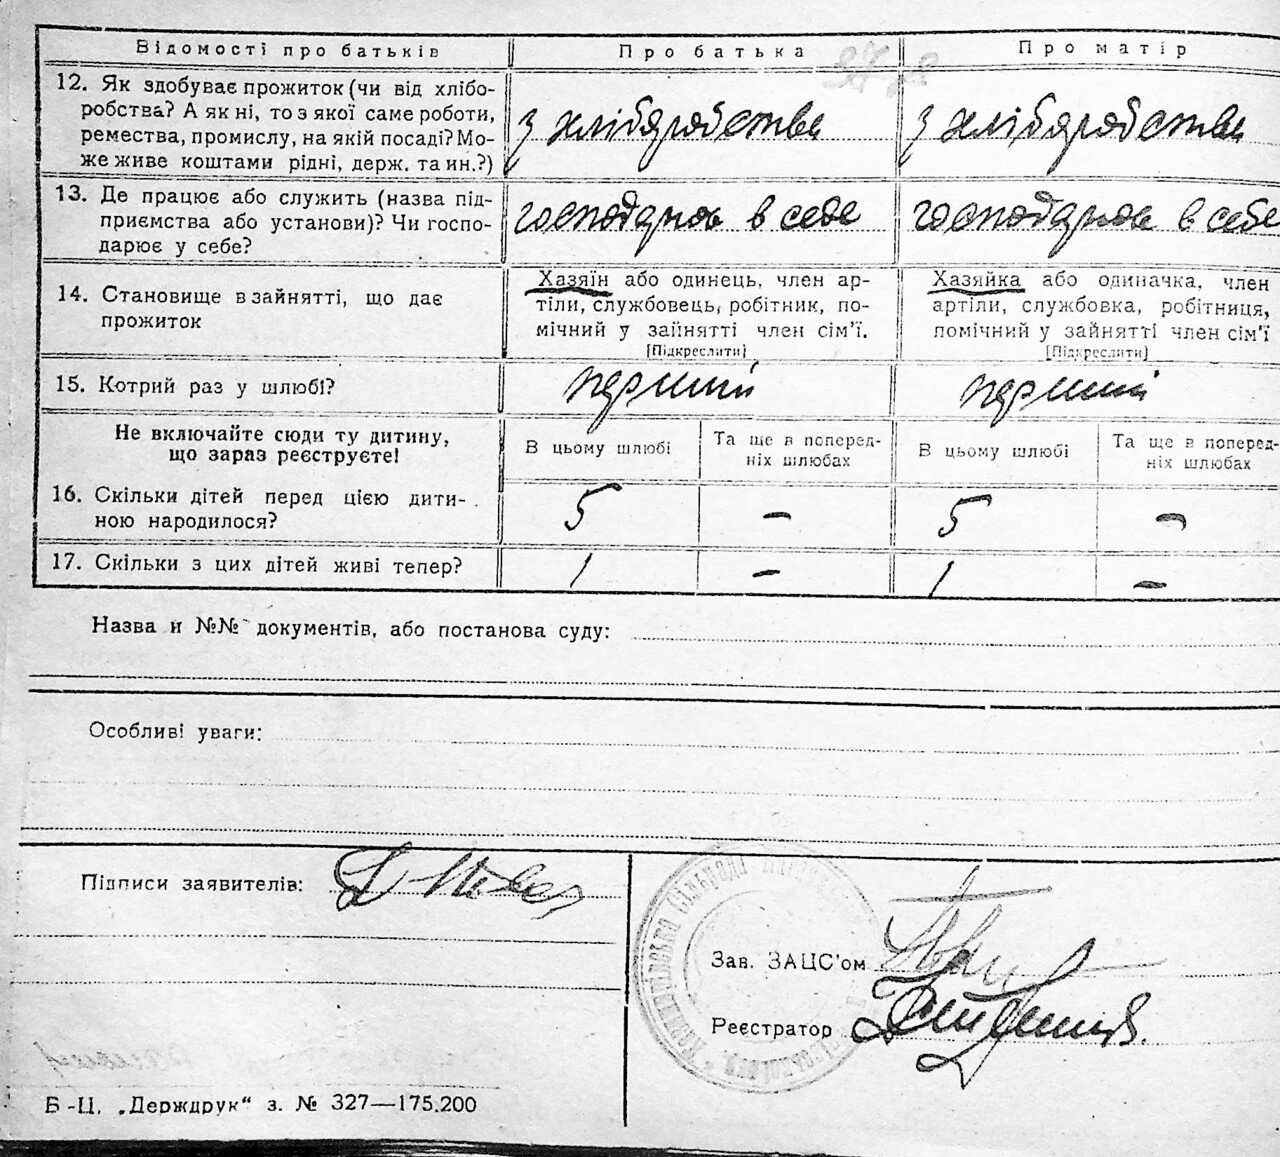 Відомості про батьків Про батька Про матір
12. Як здобуває прожиток (чи від хлібо-
робства? А як ні, то з якої саме роботи,
ремества, промислу, на якій посаді? Мо-
же живе коштами рідні, держ. та ин.?)
з хліборобства з хліборобства
13. Де працює або служить (назва під-
приємства або установи)? Чи госпо-
дарює у себе?
господарює в себе господарює в себе
14. Становище в зайнятті, що дає
прожиток
Хазяїн або одинець, член ар-
тіли, службовець, робітник, по-
мічний у зайнятті член сім'ї.
[Підкреслити]
Хазяйка або одиначка, член
артіли, службовка, робітниця,
помічний у зайнятті член сім'ї
[Підкреслити]
15. Котрий раз у шлюбі? перший перший
Не включайте сюди ту дитину,
що зараз реєструєте!
В цьому шлюбі
Та ще в поперед-
ніх шлюбах
В цьому шлюбі
Та ще в поперед-
ніх шлюбах
16. Скільки дітей перед цією дити-
ною народилося?
5 - 5 -
17. Скільки з цих дітей живі тепер? 1 - 1 -
Назва й №№ документів, або постанова суду:
Особливі уваги:
Підписи заявителів:
Зав. ЗАЦС'ом
Реєстратор
сільрада
Б-Ц. „Держдрук“ з. № 327—175.200